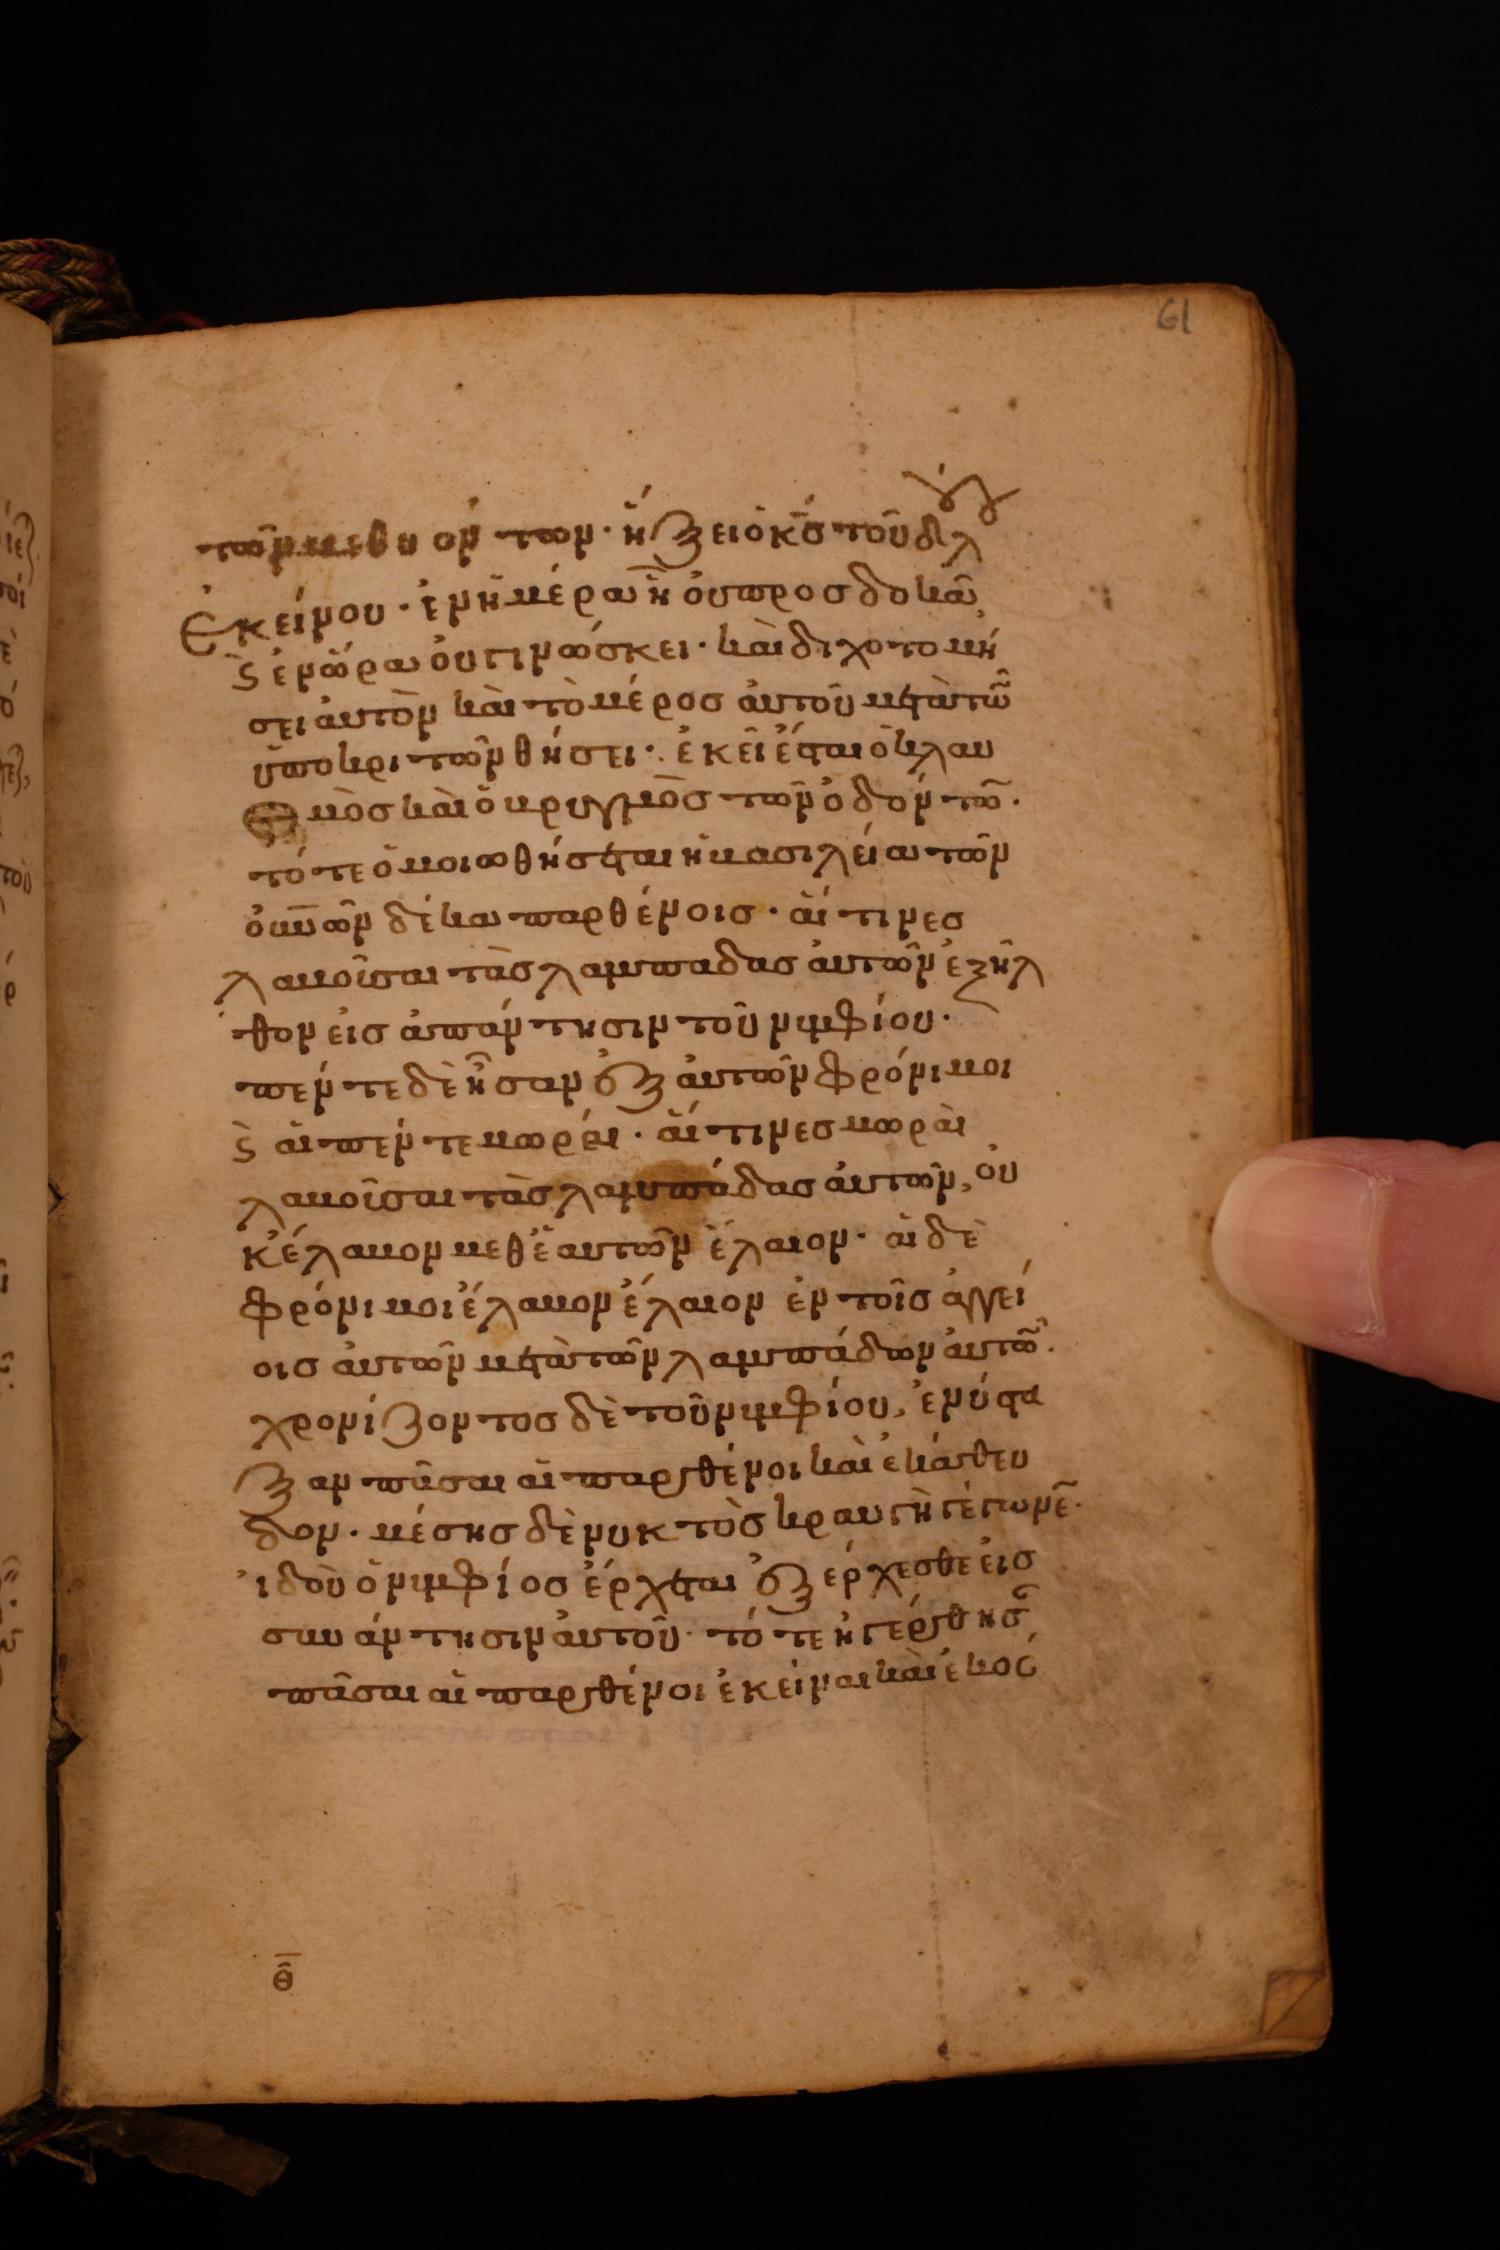 61
τῶν μεθυόντων· ἥξει ὁ κ̅ς̅ τοῦ δλ
Ἐκείνου· ἐν ἡμέρα ἧ οὐ προσδοκᾶ,
ϛ ἐν ὥρα οὐ γινώσκει· καὶ διχοτομή
σει ἀυτὸν καὶ τὸ μέρος ἀυτοῦ μετὰ τῶ̅
ὑποκριτῶν θήσει·. ἐκεῖ ἔσται ὁ κλαυ
θμὸς καὶ ὁ βρυγμὸς τῶν ὀδόντω̅·
τότε ὁμοιωθήσεται ἡ βασιλεία τῶν
ὀυν̅ῶν δέκα παρθένοις· ἅι τινες
λαβοῦσαι τὰς λαμπαδας ἀυτῶν ἐξῆλ
θον εἰς ἀπάντησιν τοῦ νυμφίου·
πέντε δὲ ἦσαν ἐξ ἀυτῶν φρόνιμοι
ϛ ἁι πέντε μωράι· ἅι τινες μωραὶ
λαβοῦσαι τὰς λαμπάδας ἀυτῶν, οὐ
κ ἔλαβον μεθ ἑαυτῶν ἔλαιον· ἁι δὲ
φρόνιμοι ἔλαβον ἔλαιον ἐν τοῖς ἀγγεί
οις ἀυτῶν μετὰ τῶν λαμπάδων ἀυτῶ̅·
χρονίζοντος δὲ τοῦ νυμφίου, ἐνύστα
ξαν πᾶσαι ἁι παρθένοι καὶ ἐκάθευ
δον· μέσης δὲ νυκτὸς κραυγὴ γέγονε̅·
ἰδοὺ ὁ νυμφίος ἔρχεται ἐξέρχεσθε εἰς
συν άντησιν ἀυτοῦ· τότε ἠγέρθησ
πᾶσαι ἁι παρθένοι ἐκείναι καὶ ἐκόσ
θ̅